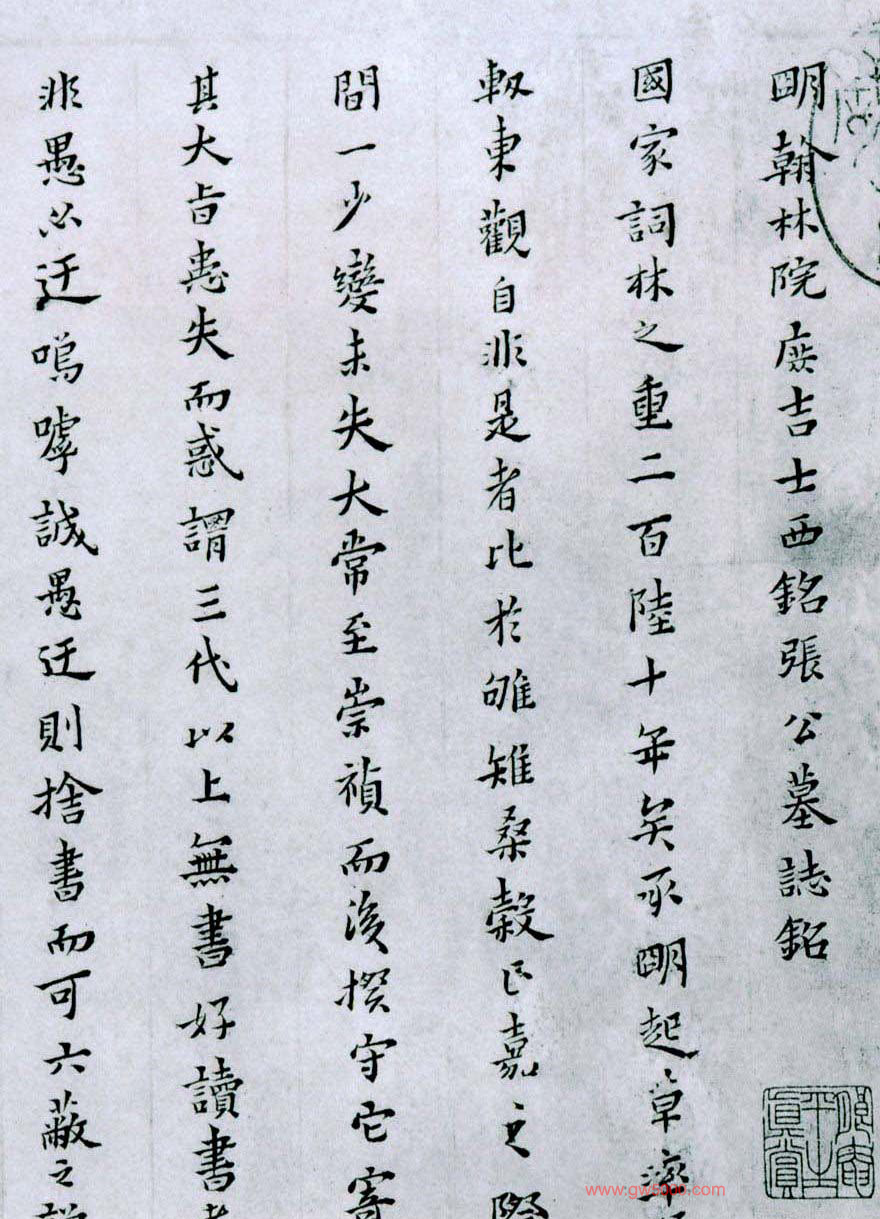 明翰林院庶吉士西銘張公墓誌銘
國家詞林之重二百陸十年矣承明起草率
軔東觀自非是者比於雊雉桑榖正嘉之際
間一少變未失大常至崇禎而後揆守它寄
其大旨患失而惑謂三代以上無書好讀書者
非愚必迂嗚嘑誠愚迂則捨書而可六蔽之説
www.gw5000.com